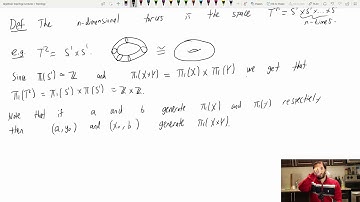 Def The n-dimensional torus is the space Tⁿ = S¹×S¹×...×S¹
n-times
e.g. T² = S¹×S¹ ≅
Since π(S¹) ≅ ℤ and π₁(X×Y) = π₁(X) × π₁(Y) we get that
π₁(T²) = π₁(S¹) × π₁(S¹) = ℤ × ℤ.
Note that if a and b generate π₁(X) and π₁(Y) respectively
then (a, y₀) and (x₀, b) generate π₁(X×Y).